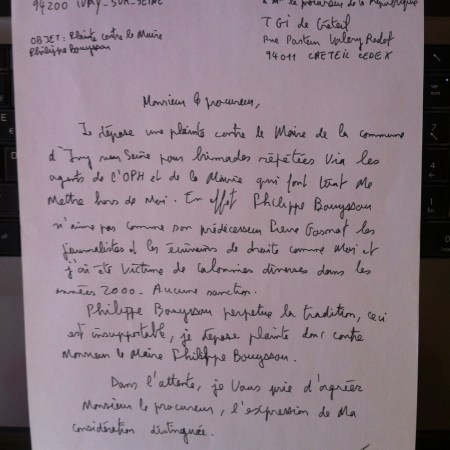 94200 IVRY-SUR-SEINE
à Mr le procureur de la République
TGI de Créteil
Rue Pasteur Valery Radot
94011 CRETEIL CEDEX
OBJET: Plainte contre le Maire
Philippe Bouyssou
Monsieur le procureur,
Je dépose une plainte contre le Maire de la commune
d'Ivry sur Seine pour brimades répétées via les
agents de l'OPH et de la Mairie qui font tout Me
Mettre hors de Moi. En effet Philippe Bouyssou
n'aime pas comme son prédécesseur Pierre Gosnat les
journalistes et les écrivains de droite comme Moi et
j'ai été Victime de calomnies diverses dans les
années 2000. Aucune sanction.
Philippe Bouyssou perpetue la tradition, ceci
est insupportable, je dépose plainte donc contre
Monsieur le Maire Philippe Bouyssou.
Dans l'attente, je Vous prie d'agréer
Monsieur le procureur, l'expression de Ma
considération distinguée.